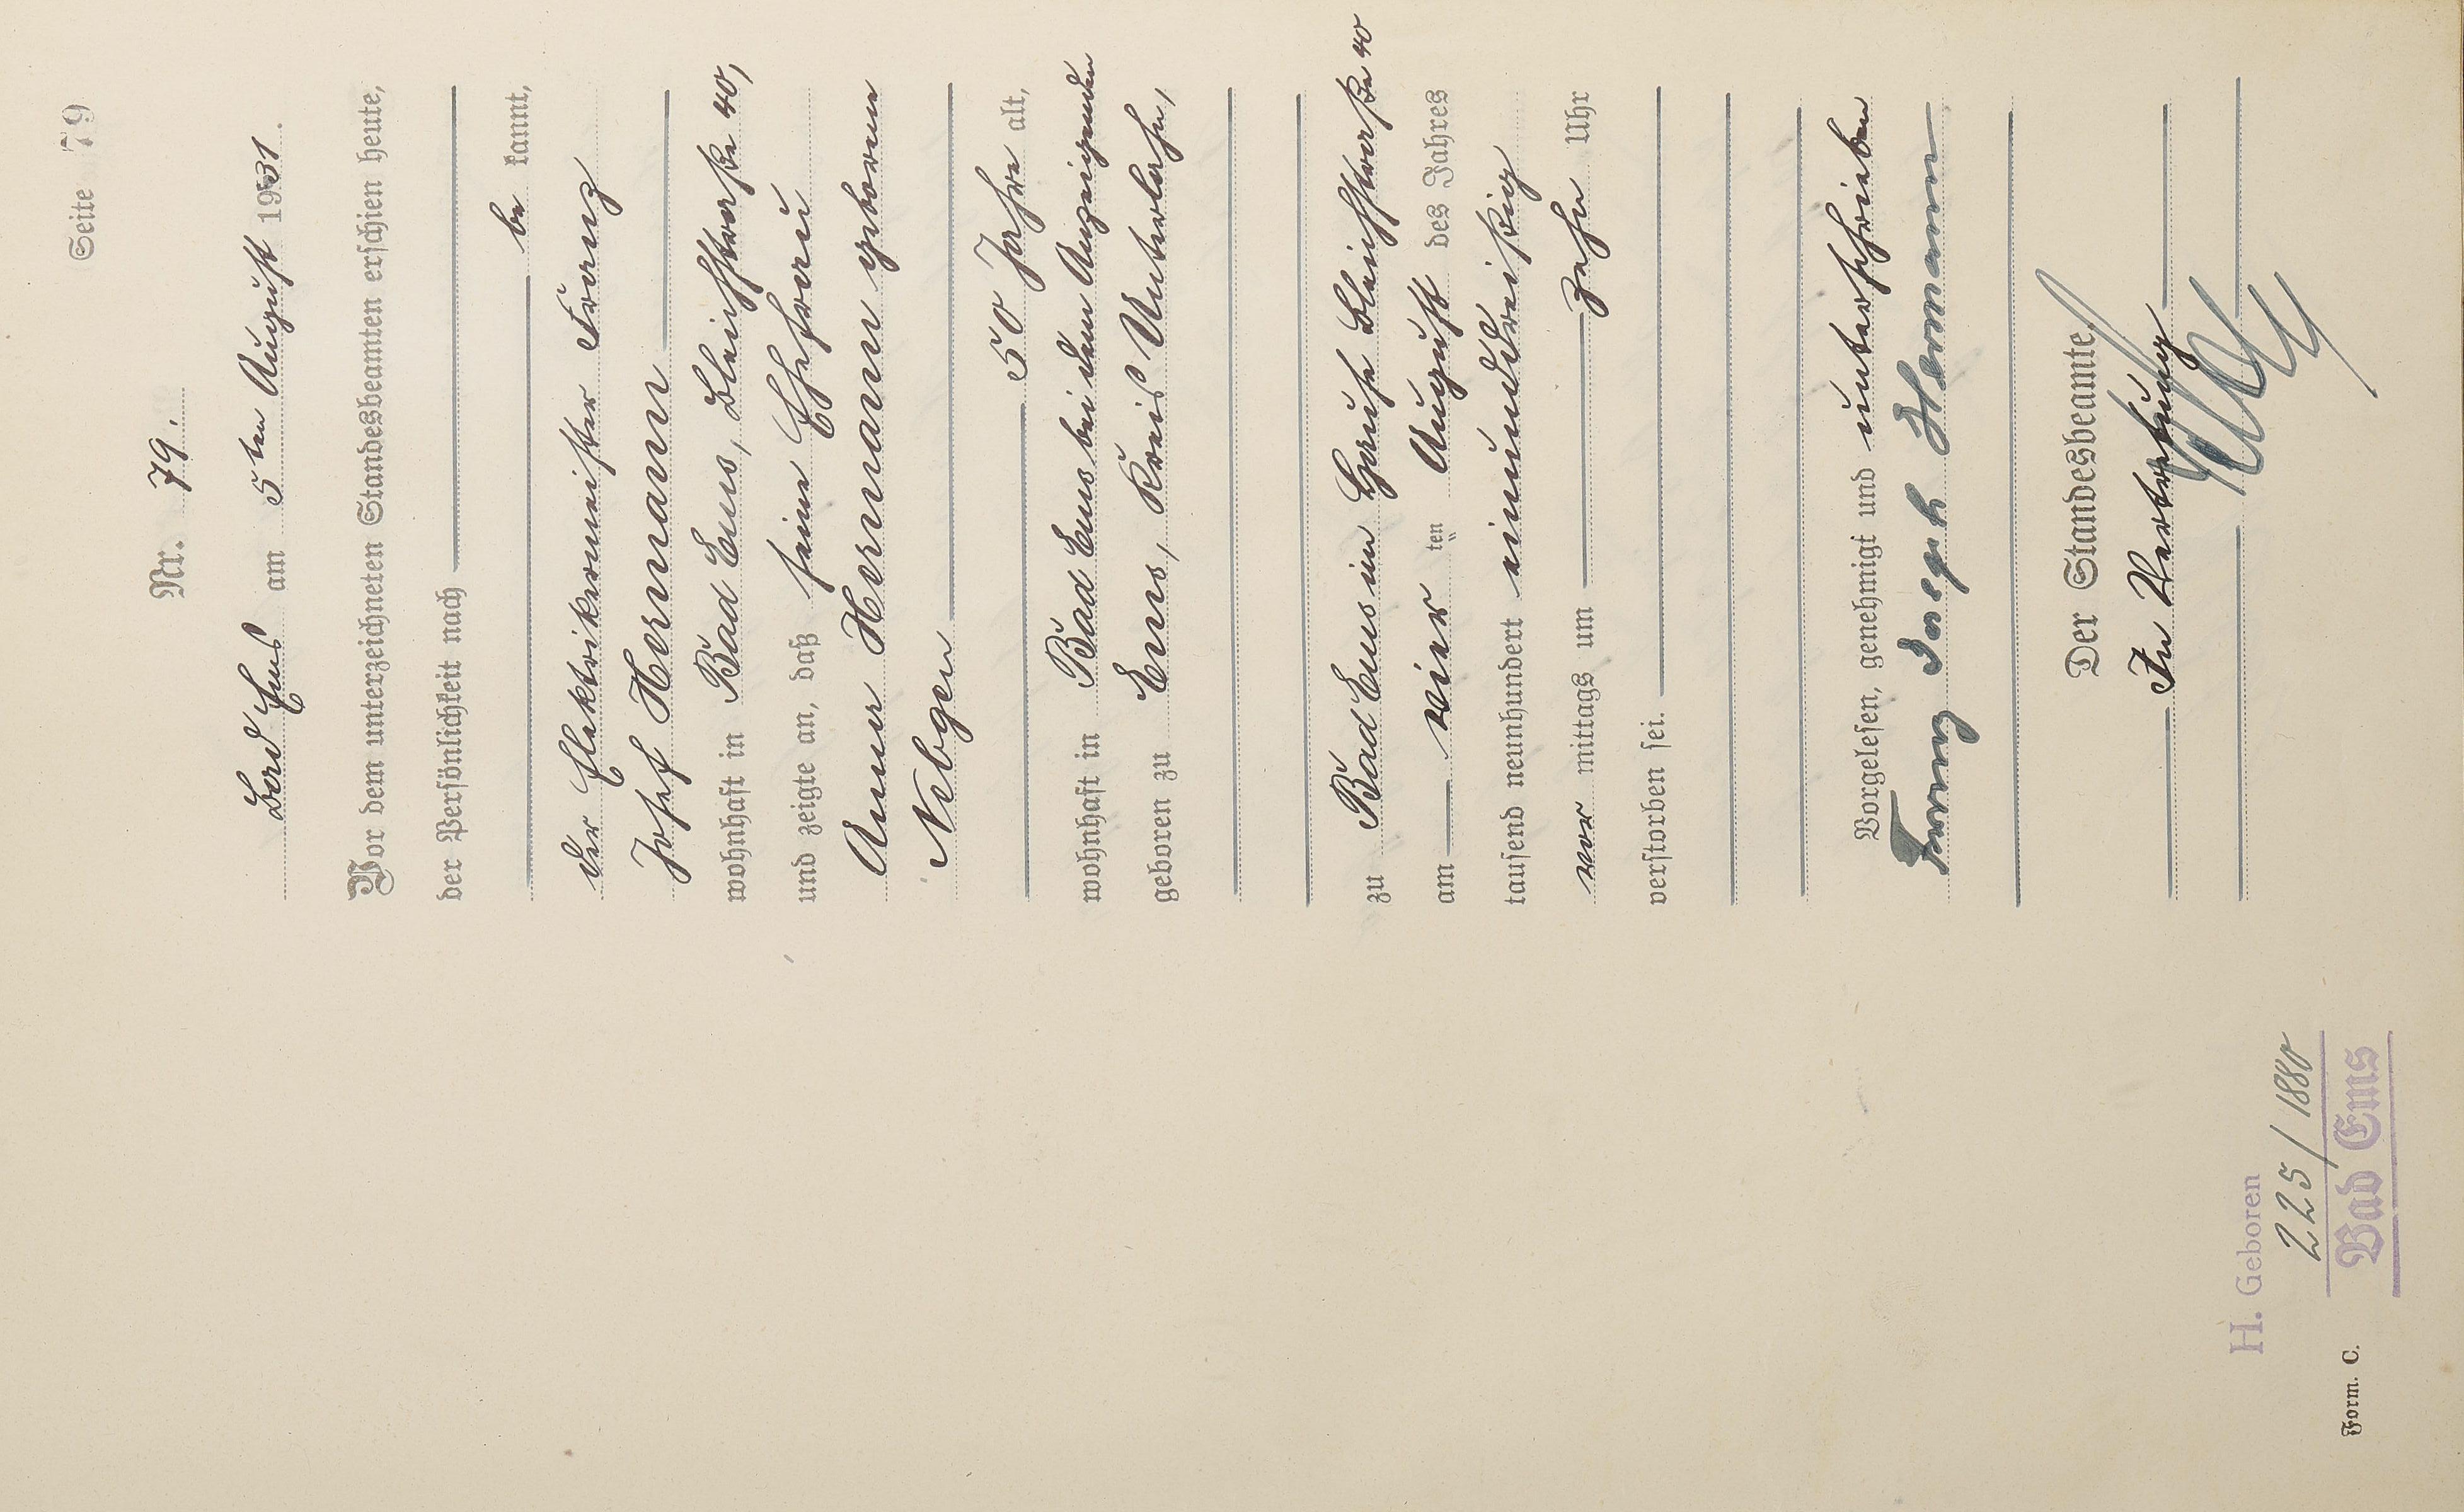 Seite 79
Nr. 79.
Bad Ems am 5ten August 1931.
Vor dem unterzeichneten Standesbeamten erschien heute,
der Persönlichkeit nach
be kannt,
der Elektrikermeister Franz
Josef Hermann
wohnhaft in Bad Ems, Bleichstraße 40,
und zeigte an, daß seine Ehefrau
Anna Hermann geborene
Nebgen
50 Jahre alt,
wohnhaft in Bad Ems bei dem Anzeigenden
geboren zu Ems, Kreis Unterlahn,
zu Bad Ems im Hause Bleichstraße 40
am vier ten August des Jahres
tausend neunhundert einunddreißig
vor mittags um zehn Uhr
verstorben sei.
Vorgelesen, genehmigt und unterschrieben
Franz Joseph Hermann
Der Standesbeamte
In Vertretung
H. Geboren
225/1880
Bad Ems
Form. C.